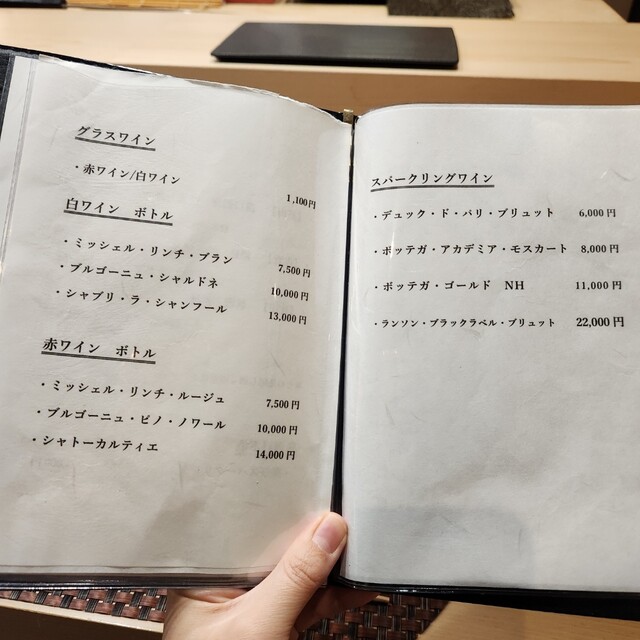 グラスワイン
・赤ワイン/白ワイン 1,100円
白ワイン ボトル
・ミッシェル・リンチ・ブラン 7,500円
・ブルゴーニュ・シャルドネ 10,000円
・シャブリ・ラ・シャンフール 13,000円
赤ワイン ボトル
・ミッシェル・リンチ・ルージュ 7,500円
・ブルゴーニュ・ピノ・ノワール 10,000円
・シャトーカルティエ 14,000円
スパークリングワイン
・デュック・ド・パリ・ブリュット 6,000円
・ボッテガ・アカデミア・モスカート 8,000円
・ボッテガ・ゴールド NH 11,000円
・ランソン・ブラックラベル・ブリュット 22,000円